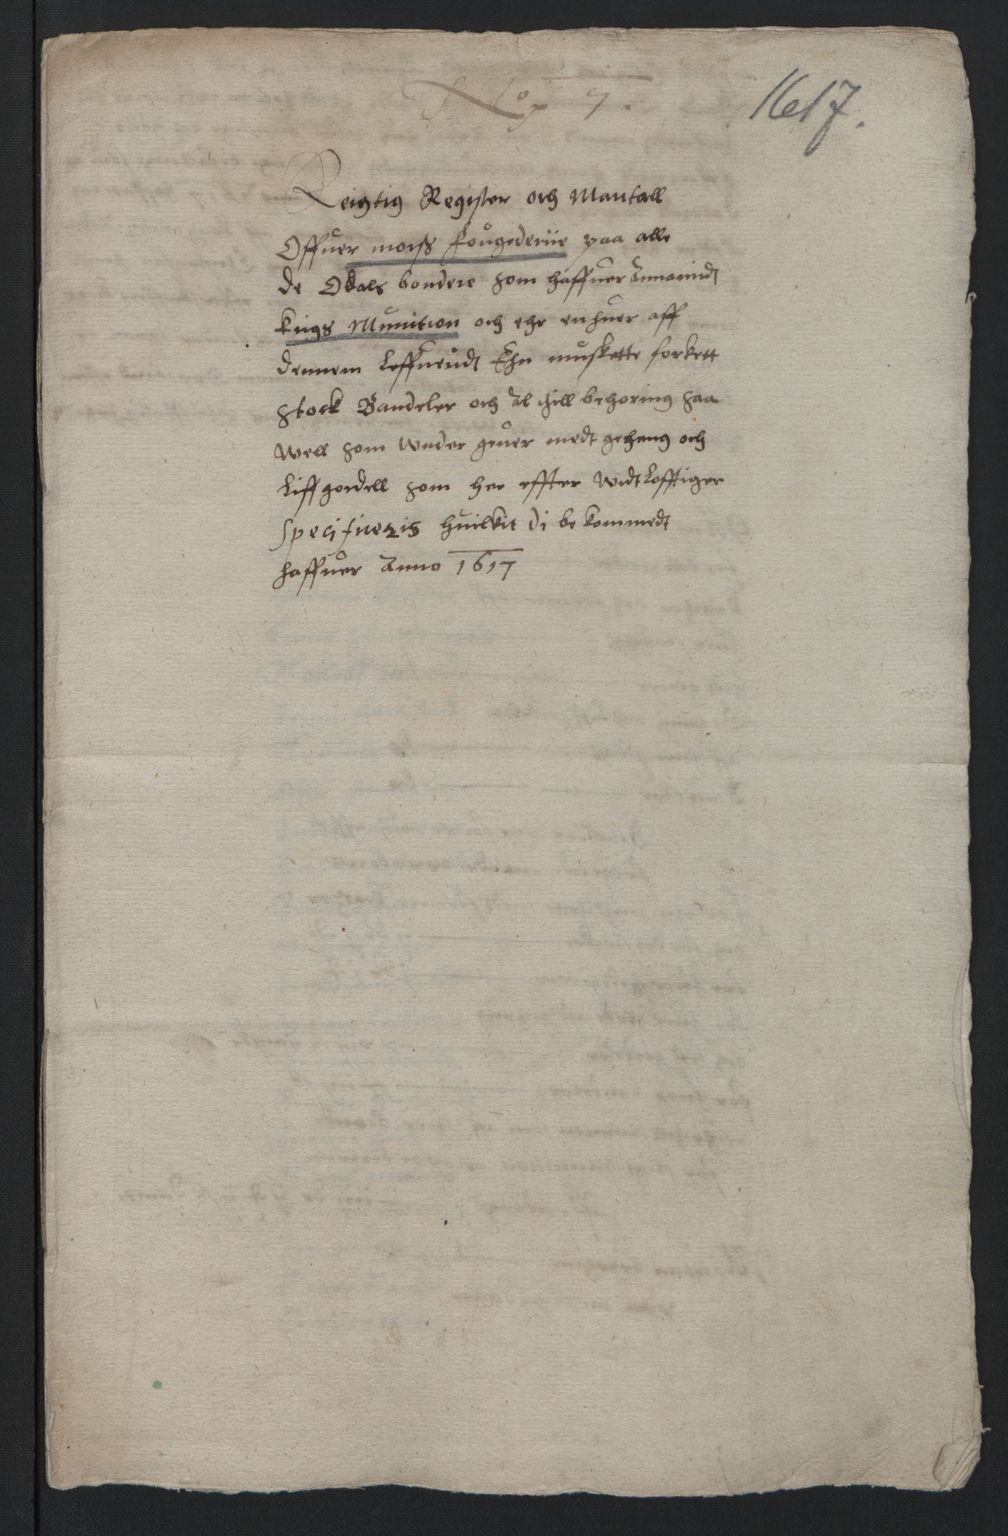 No 7.
1617.
Reigtig Register och Mantall
Offuer morss fougederiie paa alle
de Odals bondere som haffuer Annamidt
krigs Munition och ehr en huer aff
dennem Leffueridt Ehn muskette forkett
stock Bandeler och Al thill behoring saa
well som Wnder geuer medt geheng och
Liffgordell som her effter Widtlofftiger
Specificeris Huilkit di bekommedt
haffuer Anno 1617